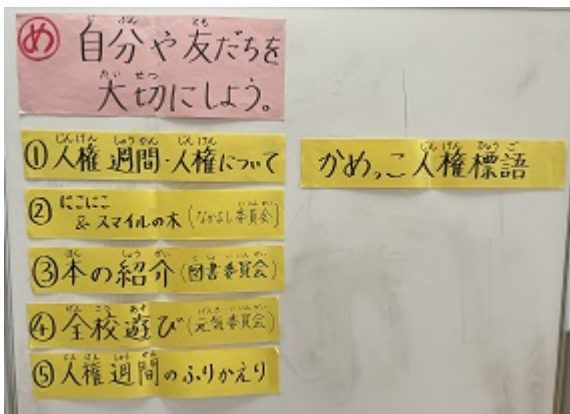 め 自分や友だちを
大切にしよう。
①人権週間・人権について
②にこにこ
&スマイルの木(なかよし委員会)
③本の紹介(図書委員会)
④全校遊び(元気委員会)
⑤人権週間のふりかえり
かめっこ人権標語